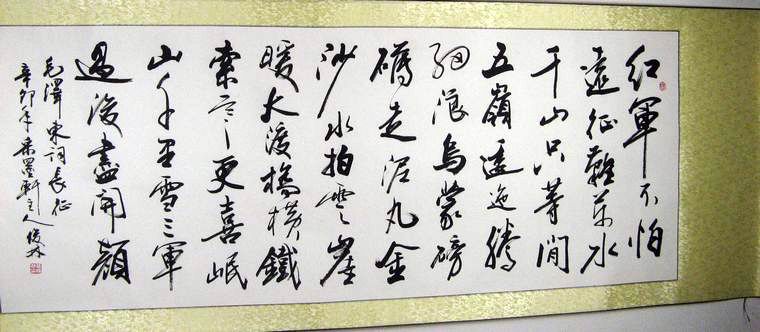 紅軍不怕
遠征難萬水
千山只等閒
五嶺逶迤騰
細浪烏蒙磅
礴走泥丸金
沙水拍雲崖
暖大渡橋橫鐵
索寒更喜岷
山千里雪三軍
過後盡開顏
毛澤東詞長征
辛卯年墨軒主人俊